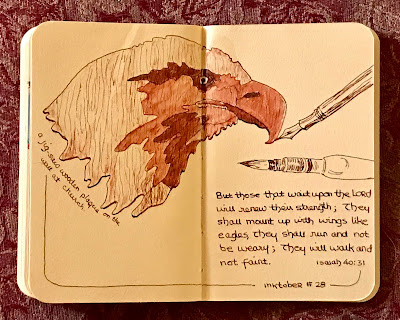 a jig-saw wooden plaque on the
wall at church
But those that wait upon the Lord
will renew their strength; They
shall mount up with wings like
eagles, They shall run and not
be weary; They will walk and
not faint.
Isaiah 40:31
inktober # 28